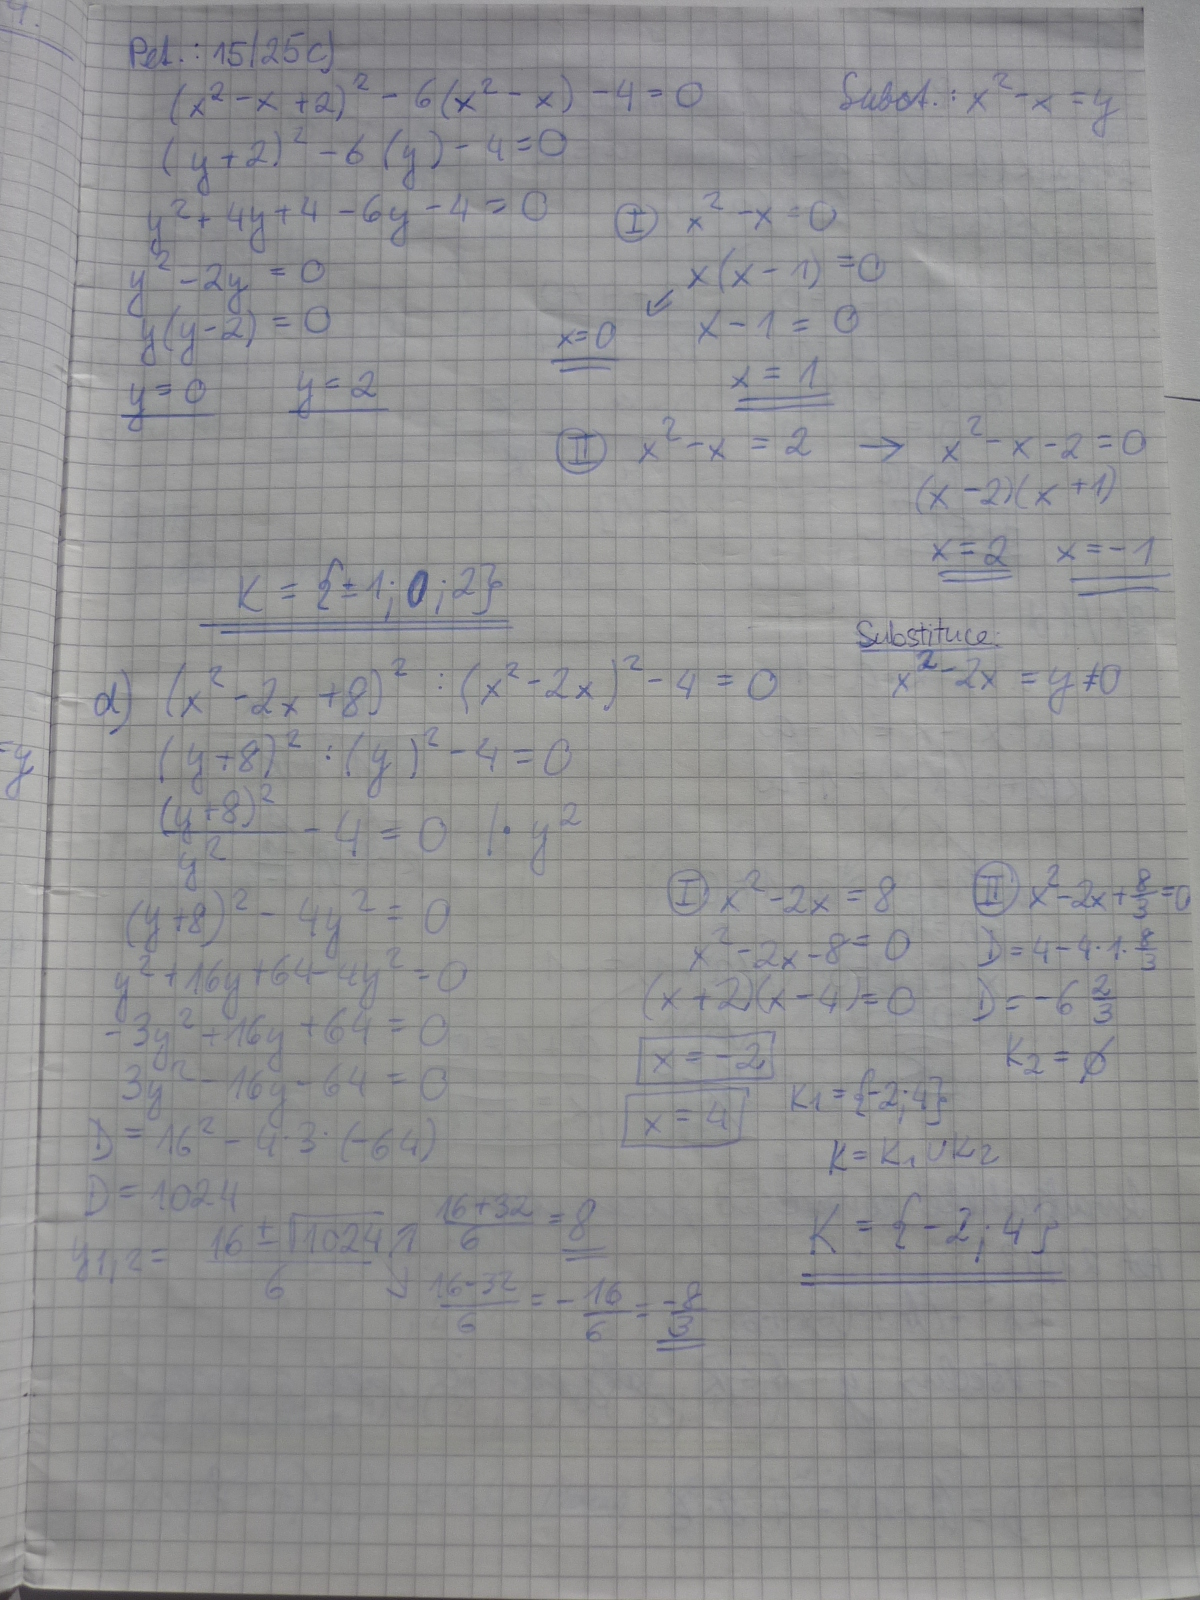 4.
Pet.: 15/25c)
(x² - x + 2)² - 6(x² - x) - 4 = 0
Subst.: x² - x = y
(y + 2)² - 6(y) - 4 = 0
y² + 4y + 4 - 6y - 4 = 0
y² - 2y = 0
y(y - 2) = 0
y = 0   y = 2
Ⓘ x² - x = 0
x(x - 1) = 0
x = 0 ↙ x - 1 = 0
x = 1
Ⅱ x² - x = 2 → x² - x - 2 = 0
(x - 2)(x + 1)
x = 2   x = -1
K = {±1; 0; 2}
Substituce:
x² - 2x = y ≠ 0
d) (x² - 2x + 8)² : (x² - 2x)² - 4 = 0
(y + 8)² : (y)² - 4 = 0
= y
(y + 8)²/y² - 4 = 0 /· y²
(y + 8)² - 4y² = 0
y² + 16y + 64 - 4y² = 0
-3y² + 16y + 64 = 0
3y² - 16y - 64 = 0
D = 16² - 4·3·(-64)
D = 1024
y1,2 = (16 ± √1024)/6
↗ (16 + 32)/6 = 8
↘ (16 - 32)/6 = -16/6 = -8/3
Ⓘ x² - 2x = 8
x² - 2x - 8 = 0
(x + 2)(x - 4) = 0
x = -2
x = 4
Ⅱ x² - 2x + 8/3 = 0
D = 4 - 4·1·8/3
D = -6 2/3
K2 = ∅
K1 = {-2; 4}
K = K1 ∪ K2
K = {-2; 4}